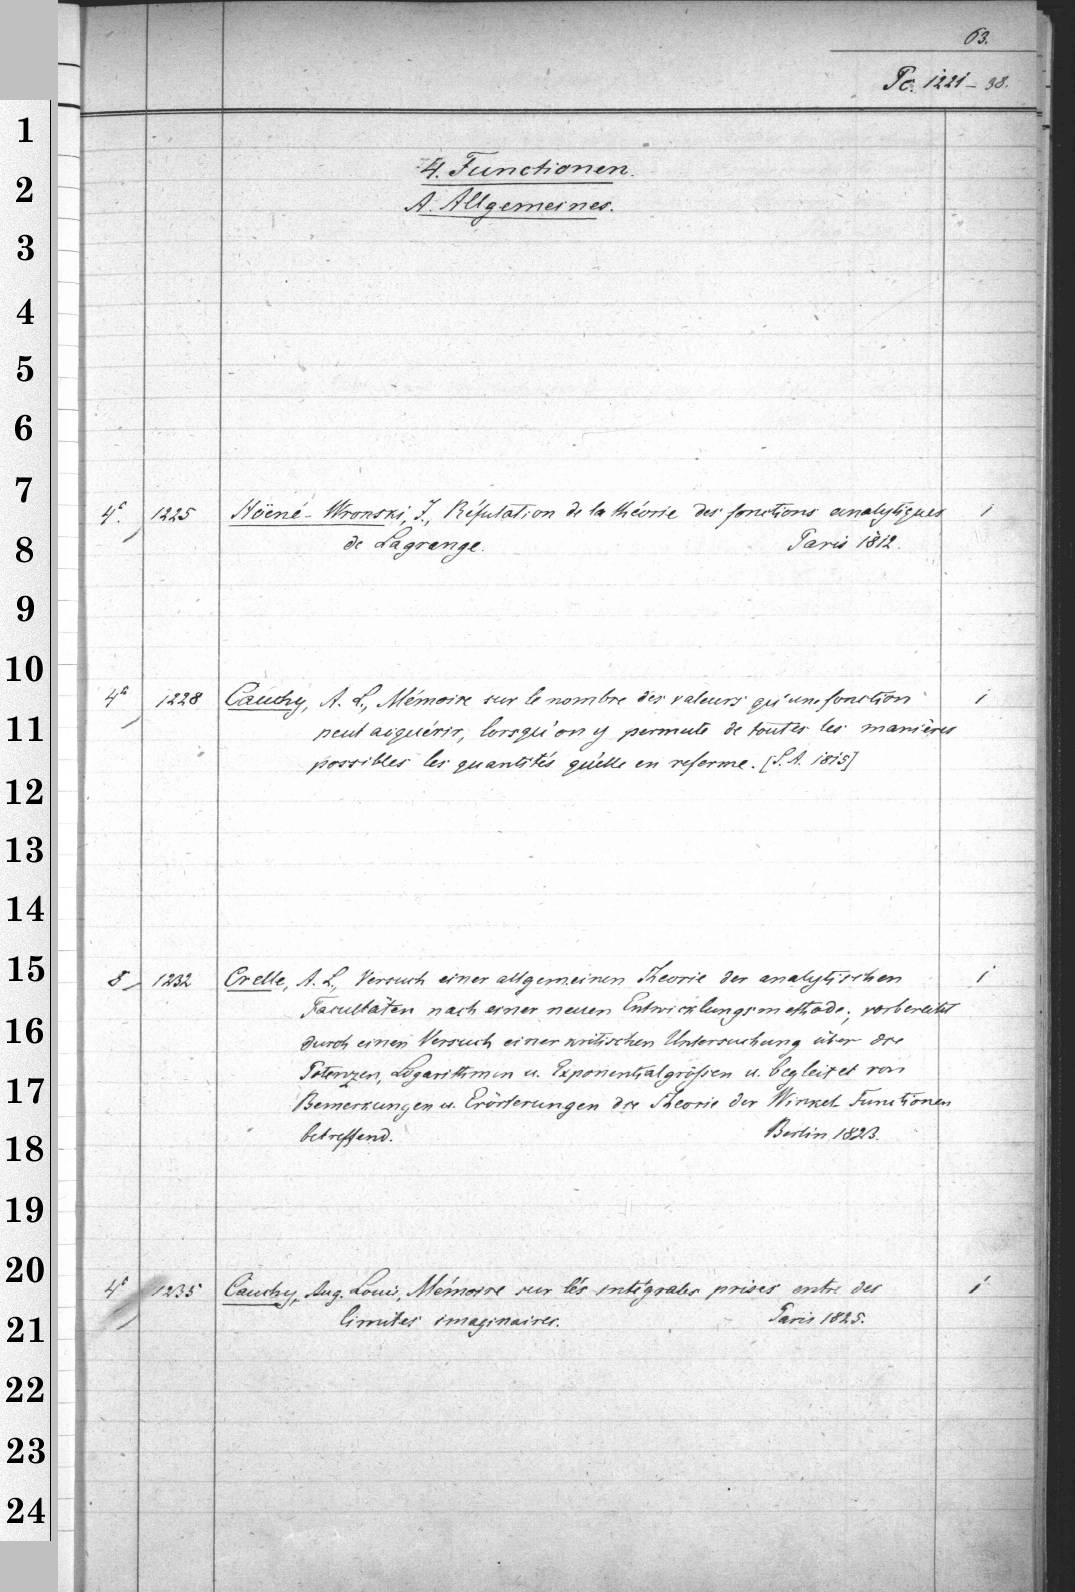 63.
Pc. 1221-38.
4. Functionen.
A. Allgemeines.
4° 1225 Höené-Wronski, J., Réfutation de la théorie des fonctions analytiques 1
de Lagrange. Paris 1812.
4° 1228 Cauchy, A. L., Mémoire sur le nombre des valeurs qu'une fonction 1
peut acquérir, lorsqu'on y permute de toutes les manières
possibles les quantités qu'elle en referme. [S. A. 1815]
8 1232 Crelle, A. L., Versuch einer allgemeinen Theorie der analytischen 1
Facultäten nach einer neuen Entwicklungsmethode; vorbereitet
durch einen Versuch einer kritischen Untersuchung über die
Potenzen, Logarithmen u. Exponentialgrößen u. begleitet von
Bemerkungen u. Erörterungen die Theorie der Winkel-Functionen
betreffend. Berlin 1823.
4° 1235 Cauchy, Aug. Louis, Mémoire sur les intégrales prises entre des 1
limites imaginaires. Paris 1825.
1
2
3
4
5
6
7
8
9
10
11
12
13
14
15
16
17
18
19
20
21
22
23
24